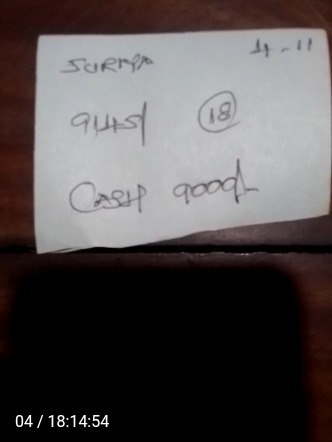 SURYA 4-11
9145/ 18
CASH 9000/-
04 / 18:14:54